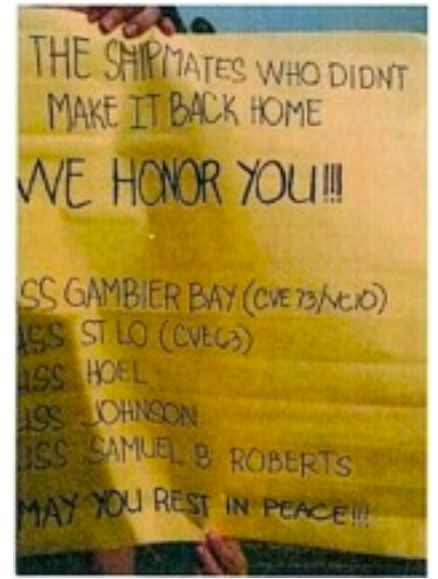 THE SHIPMATES WHO DIDNT
MAKE IT BACK HOME
WE HONOR YOU!!!
SS GAMBIER BAY (CVE 73/VC10)
USS ST LO (CVE63)
USS HOEL
USS JOHNSON
USS SAMUEL B ROBERTS
MAY YOU REST IN PEACE!!!